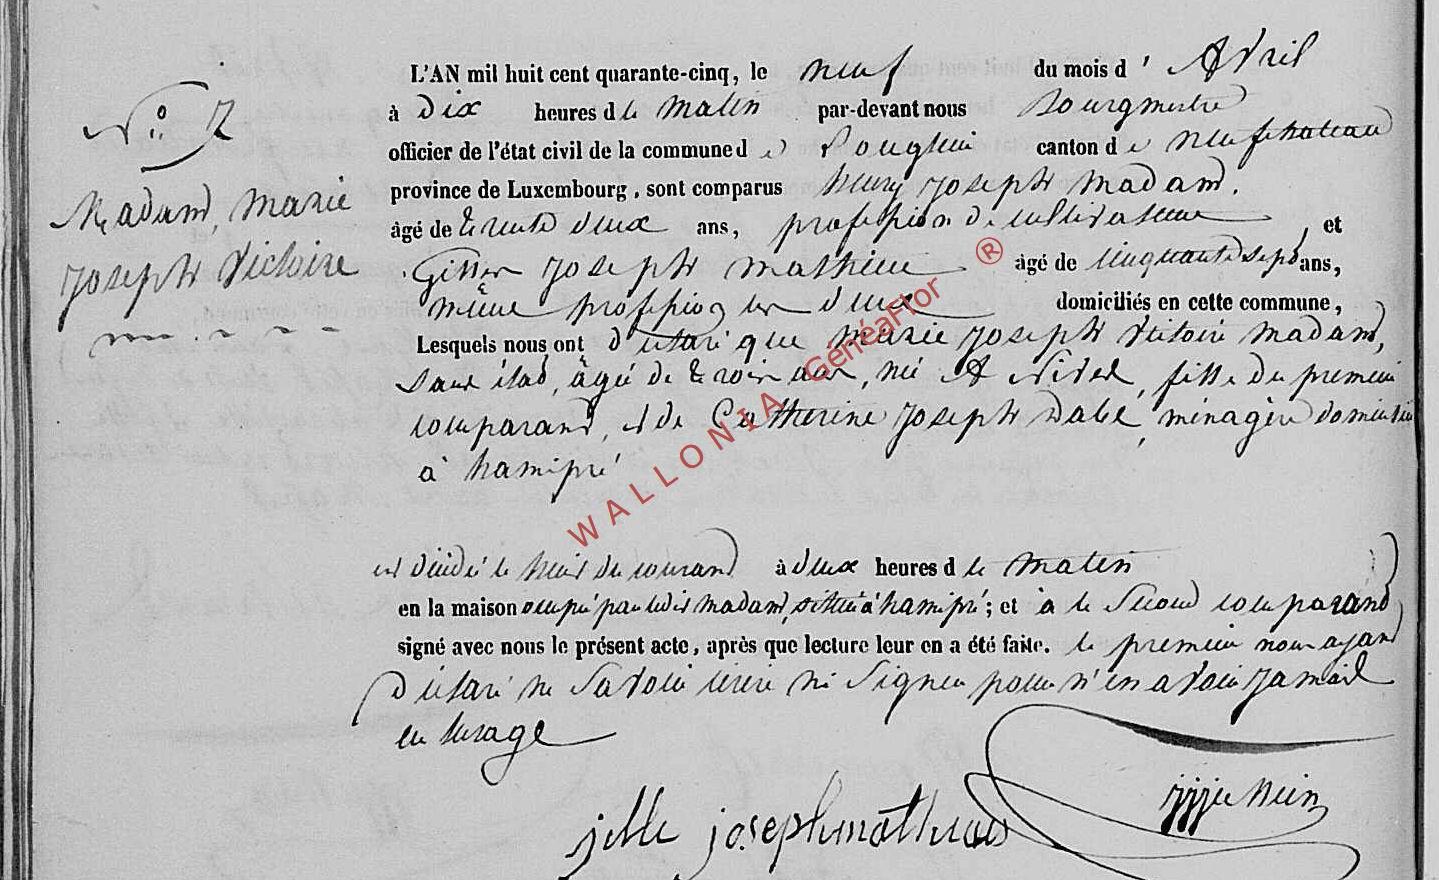 L'AN mil huit cent quarante-cinq, le neuf du mois d' Avril
à dix heures d le matin par-devant nous Bourgmestre
officier de l'état civil de la commune d e canton d e neufchateau
province de Luxembourg, sont comparus henry joseph Madam.
âgé de trente deux ans, profession de cultivateur, et
joseph mathieu âgé de cinquante sept ans,
même profession les deux domiciliés en cette commune,
Lesquels nous ont déclaré que Marie joseph Victoire Madam,
sans état, âgée de trois ans, née A, fille du premier
comparant, et de Catherine joseph, ménagère domicilié
à hamipré
est décédé le huit du courant à deux heures d le matin
en la maison occupé par ledit Madam, située à hamipré; et à le Second comparant
signé avec nous le présent acte, après que lecture leur en a été faite. le premier nous ayant
déclaré ne Savoir écrire ni Signer pour n'en avoir jamais
eu lusage
joseph mathieu
N° 7
Madam, Marie
joseph Victoire
WALLONIA GénéaFlor ®